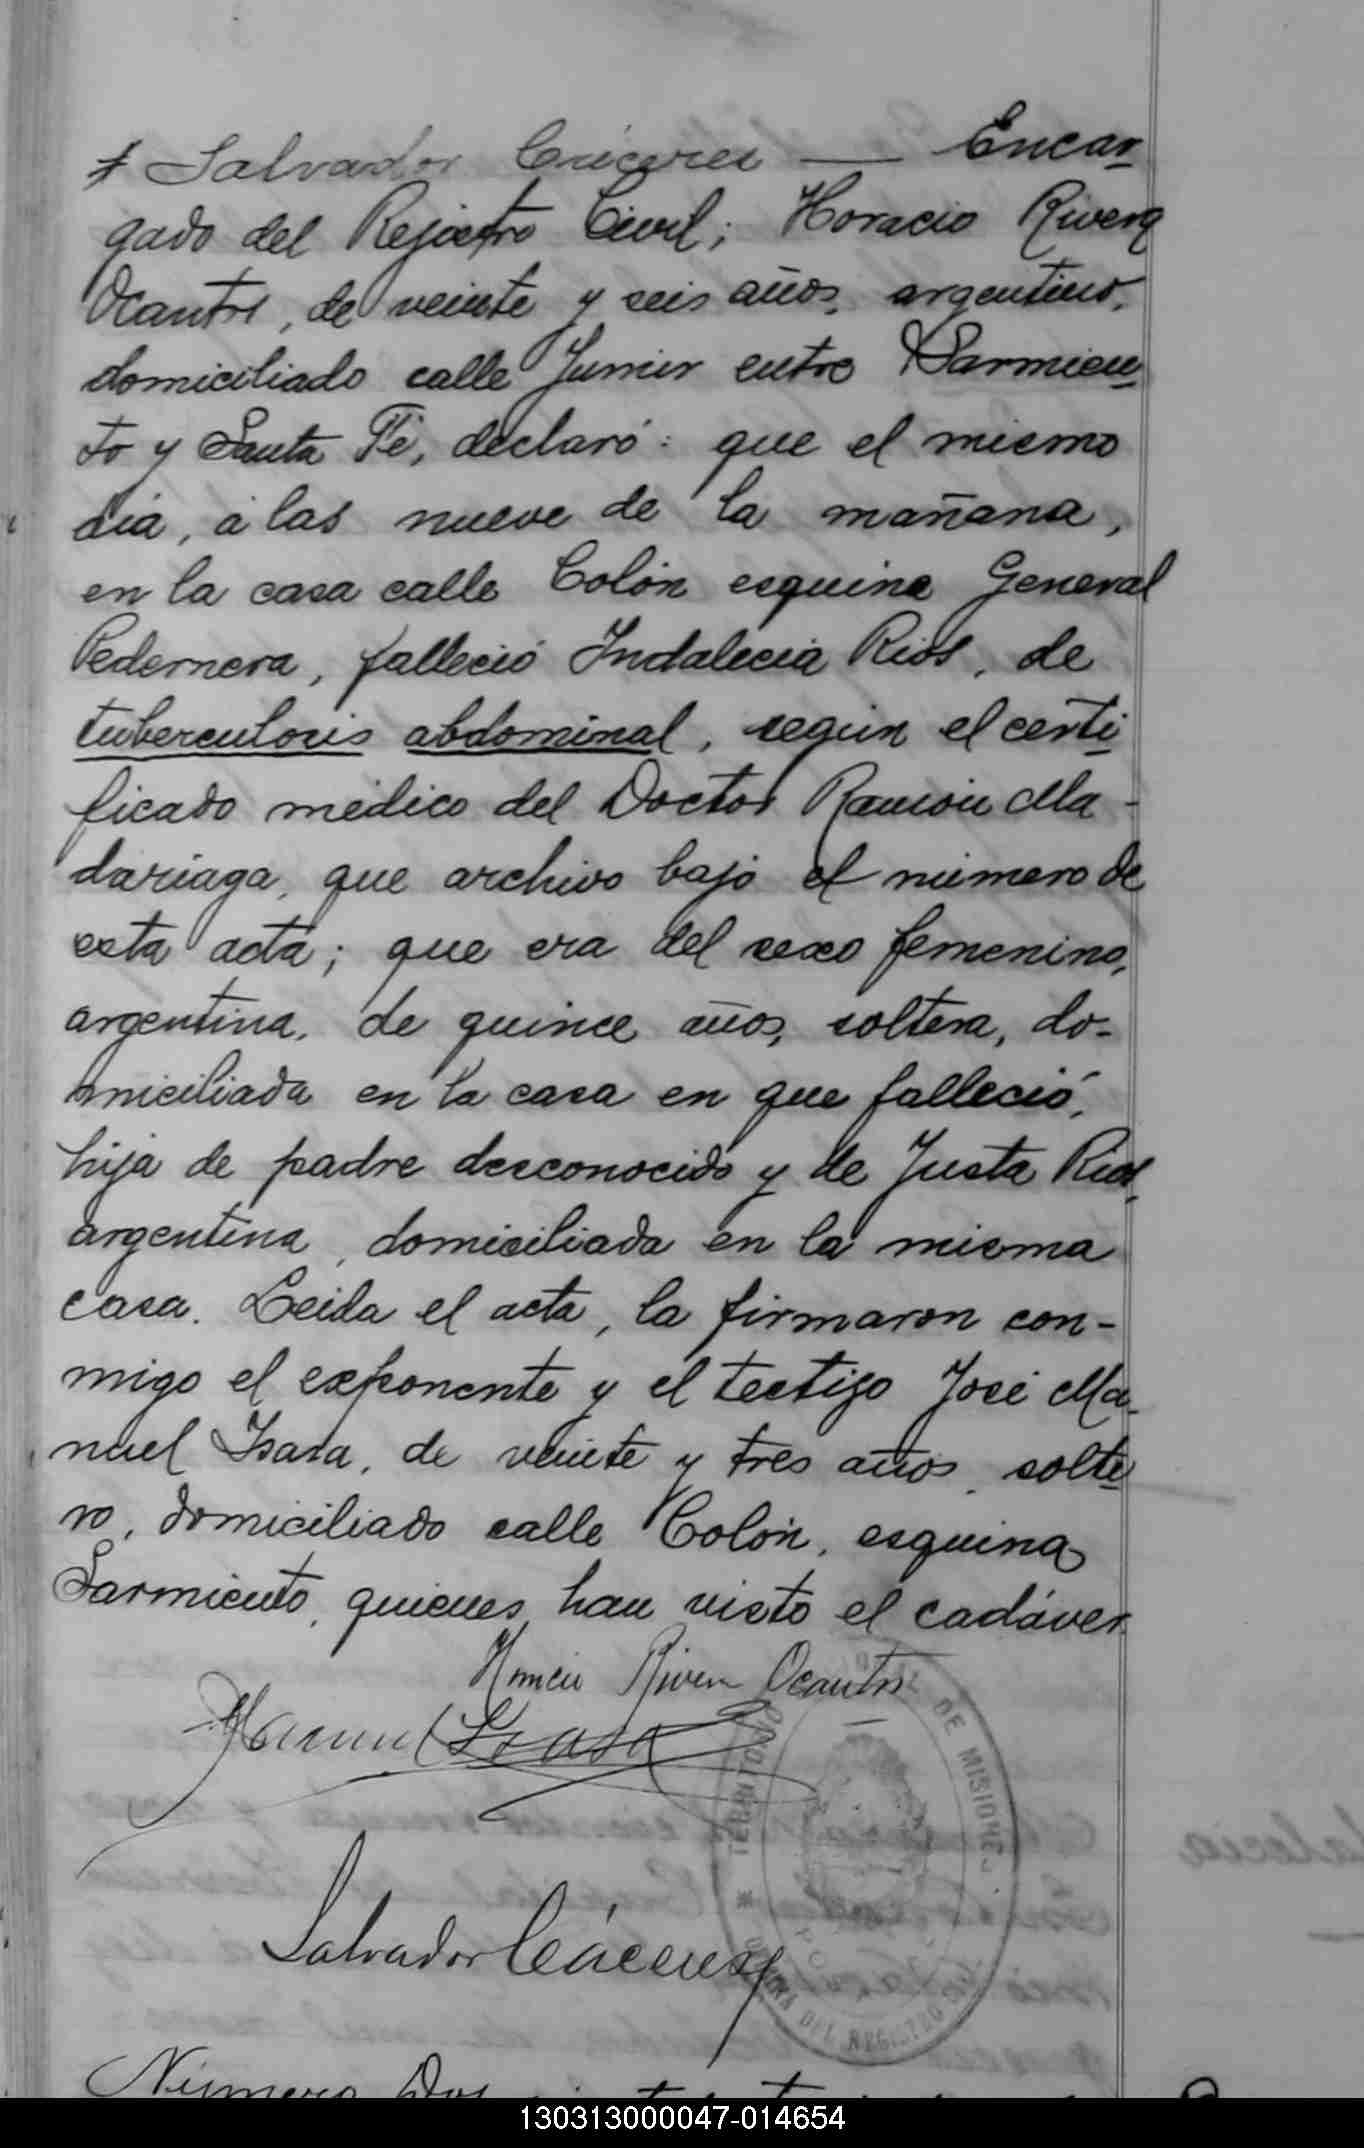 Salvador Cáceres — Encar-
gado del Rejistro Civil; Horacio Rivera
Ocantos, de veinte y seis años, argentino,
domiciliado calle Junin entre Sarmien-
to y Santa Fé, declaró: que el mismo
dia, á las nueve de la mañana,
en la casa calle Colón esquina General
Pedernera, falleció Indalecia Rios, de
tuberculosis abdominal, según el certi-
ficado médico del Doctor Ramón Ma-
dariaga, que archivo bajo el número de
esta acta; que era del sexo femenino,
argentina, de quince años, soltera, do-
miciliada en la casa en que falleció,
hija de padre desconocido y de Justa Rios,
argentina, domiciliada en la misma
casa. Leida el acta, la firmaron con-
migo el exponente y el testigo José Ma-
nuel Isasa, de veinte y tres años, solte-
ro, domiciliado calle Colón, esquina
Sarmiento, quienes han visto el cadáver.
Horacio Rivera Ocantos
Manuel Isasa
TERRITORIO DE MISIONES
DEL REGISTRO
Salvador Cáceres
Número Dos
130313000047-014654